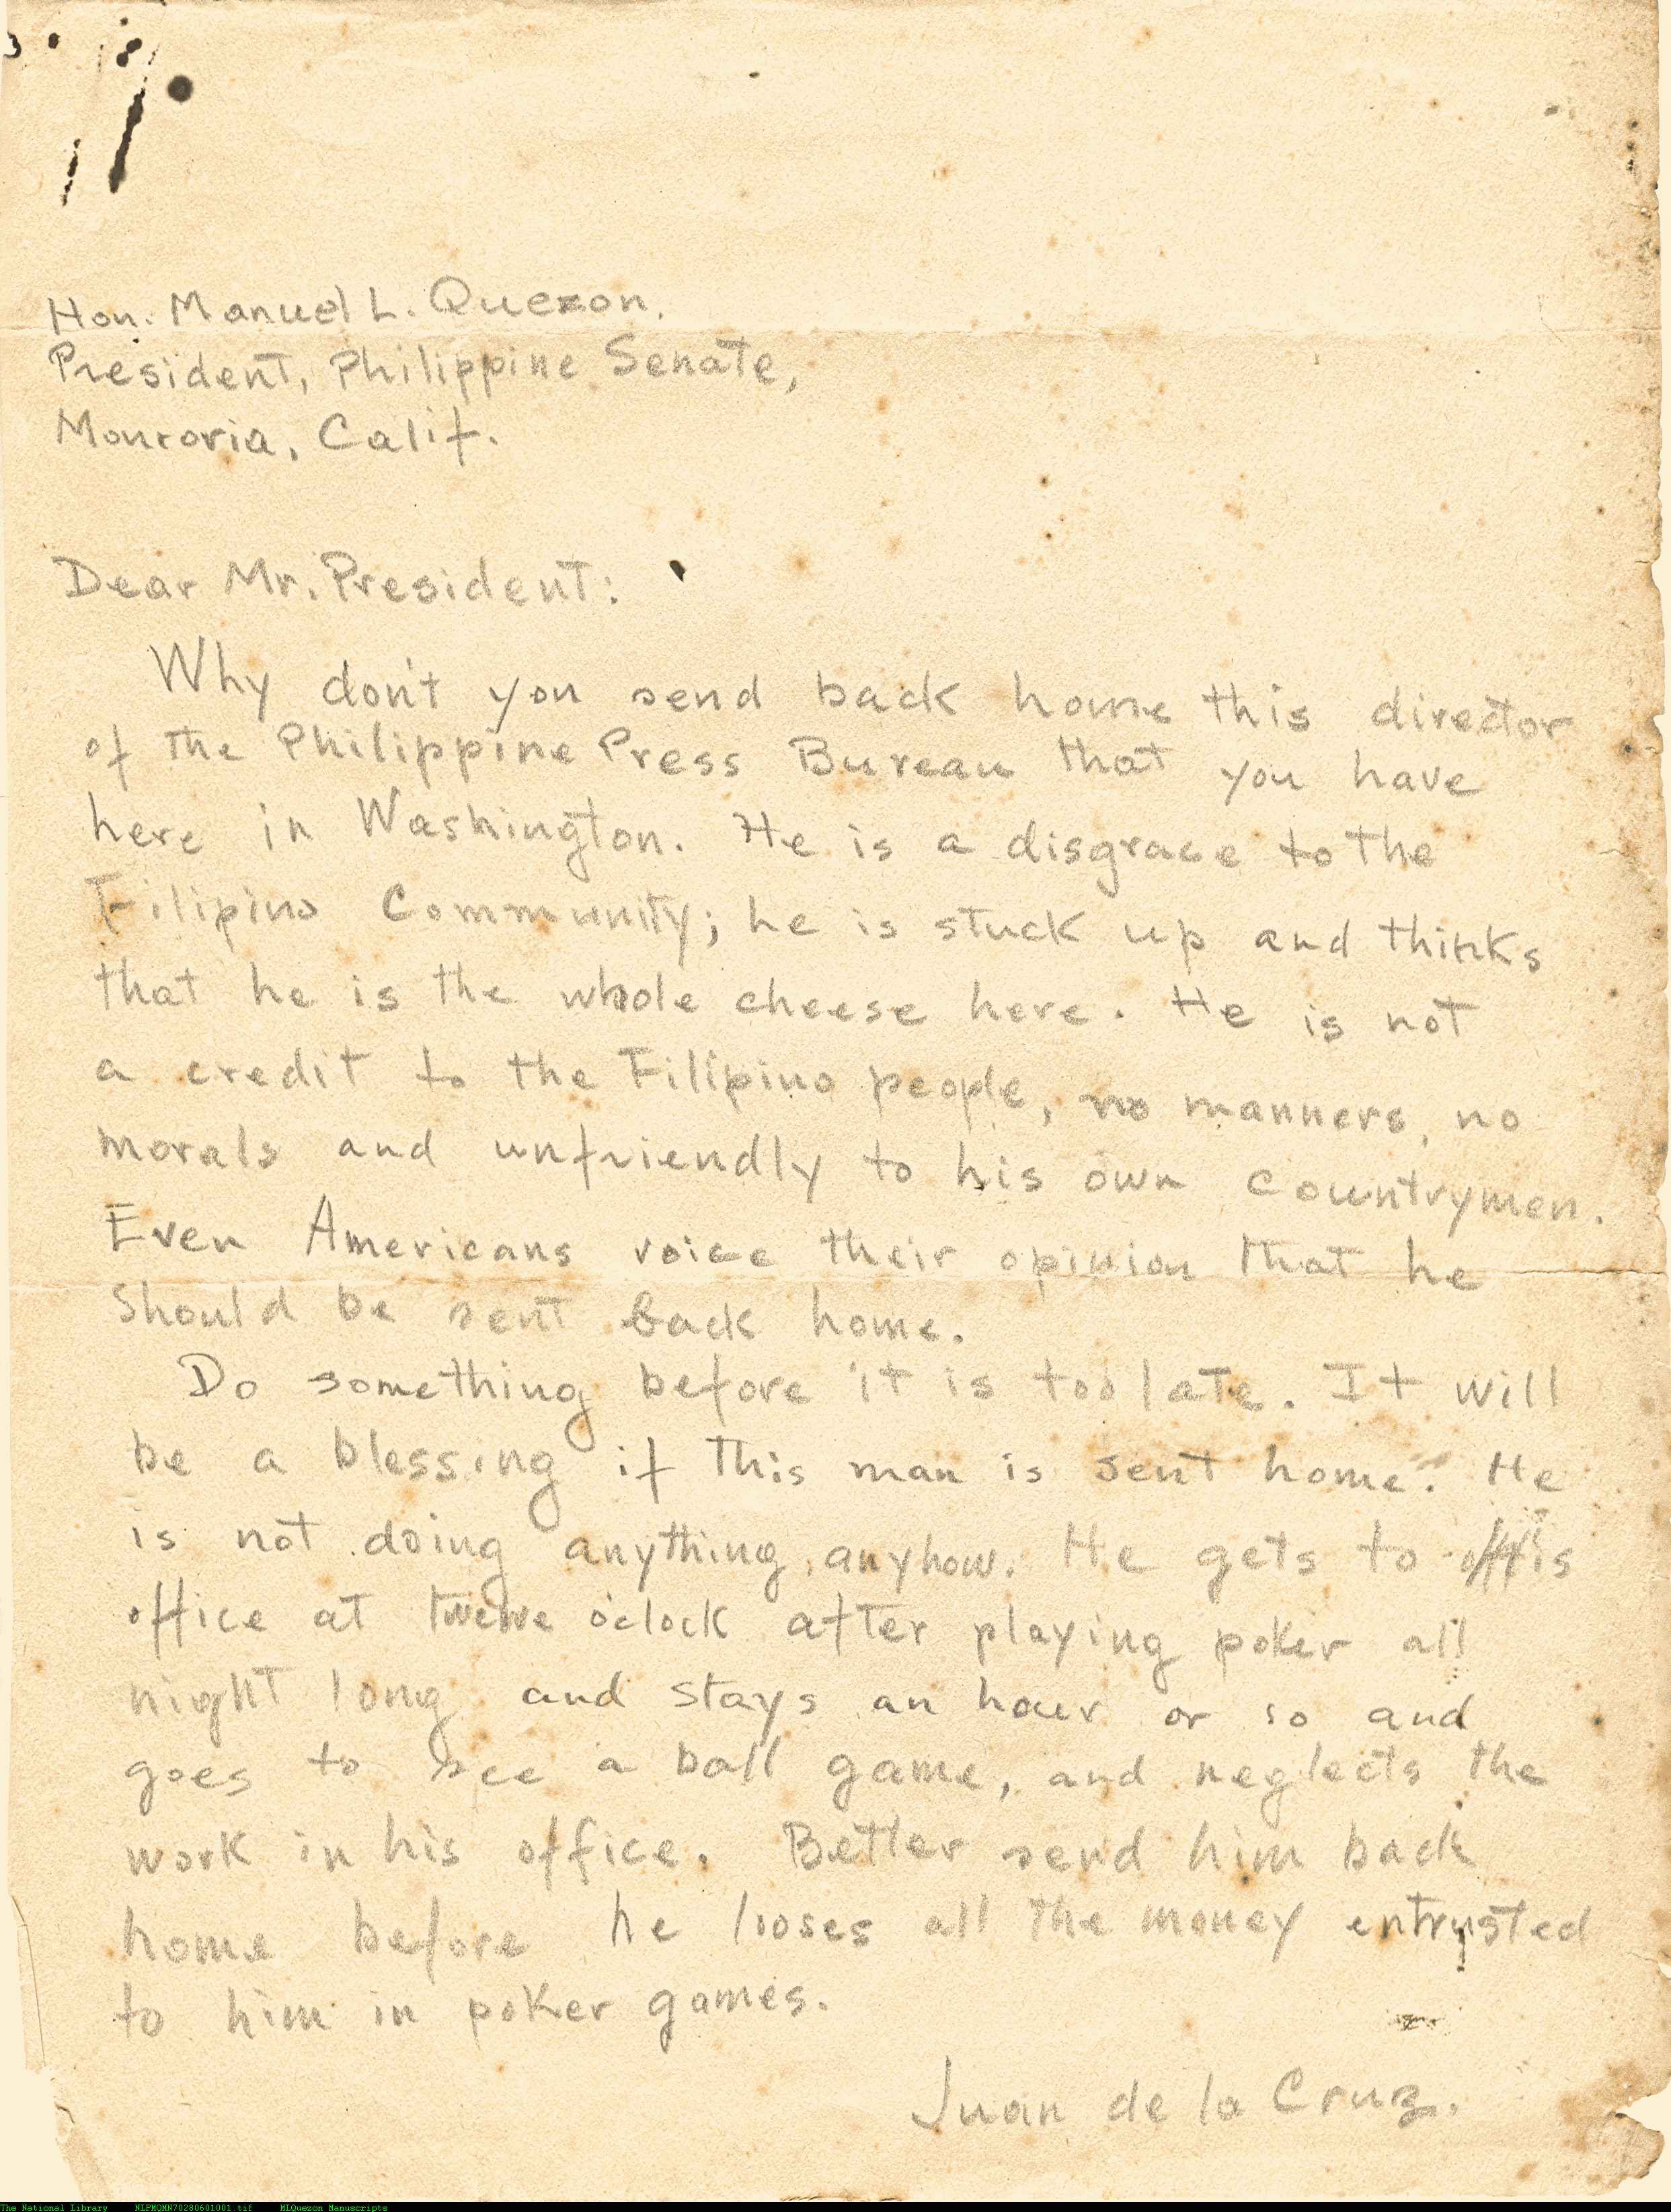 Hon. Manuel L. Quezon,
President, Philippine Senate,
Monrovia, Calif.
Dear Mr. President:
Why don't you send back home this director
of the Philippine Press Bureau that you have
here in Washington. He is a disgrace to the
Filipino Community; he is stuck up and thinks
that he is the whole cheese here. He is not
a credit to the Filipino people, no manners, no
morals and unfriendly to his own countrymen.
Even Americans voice their opinion that he
should be sent back home.
Do something before it is too late. It will
be a blessing if this man is sent home. He
is not doing anything, anyhow. He gets to his
office at twelve o'clock after playing poker all
night long and stays an hour or so and
goes to see a ball game, and neglects the
work in his office. Better send him back
home before he looses all the money entrusted
to him in poker games.
Juan de la Cruz.
The National Library NLPMQMN70280601001.tif MLQuezon Manuscripts